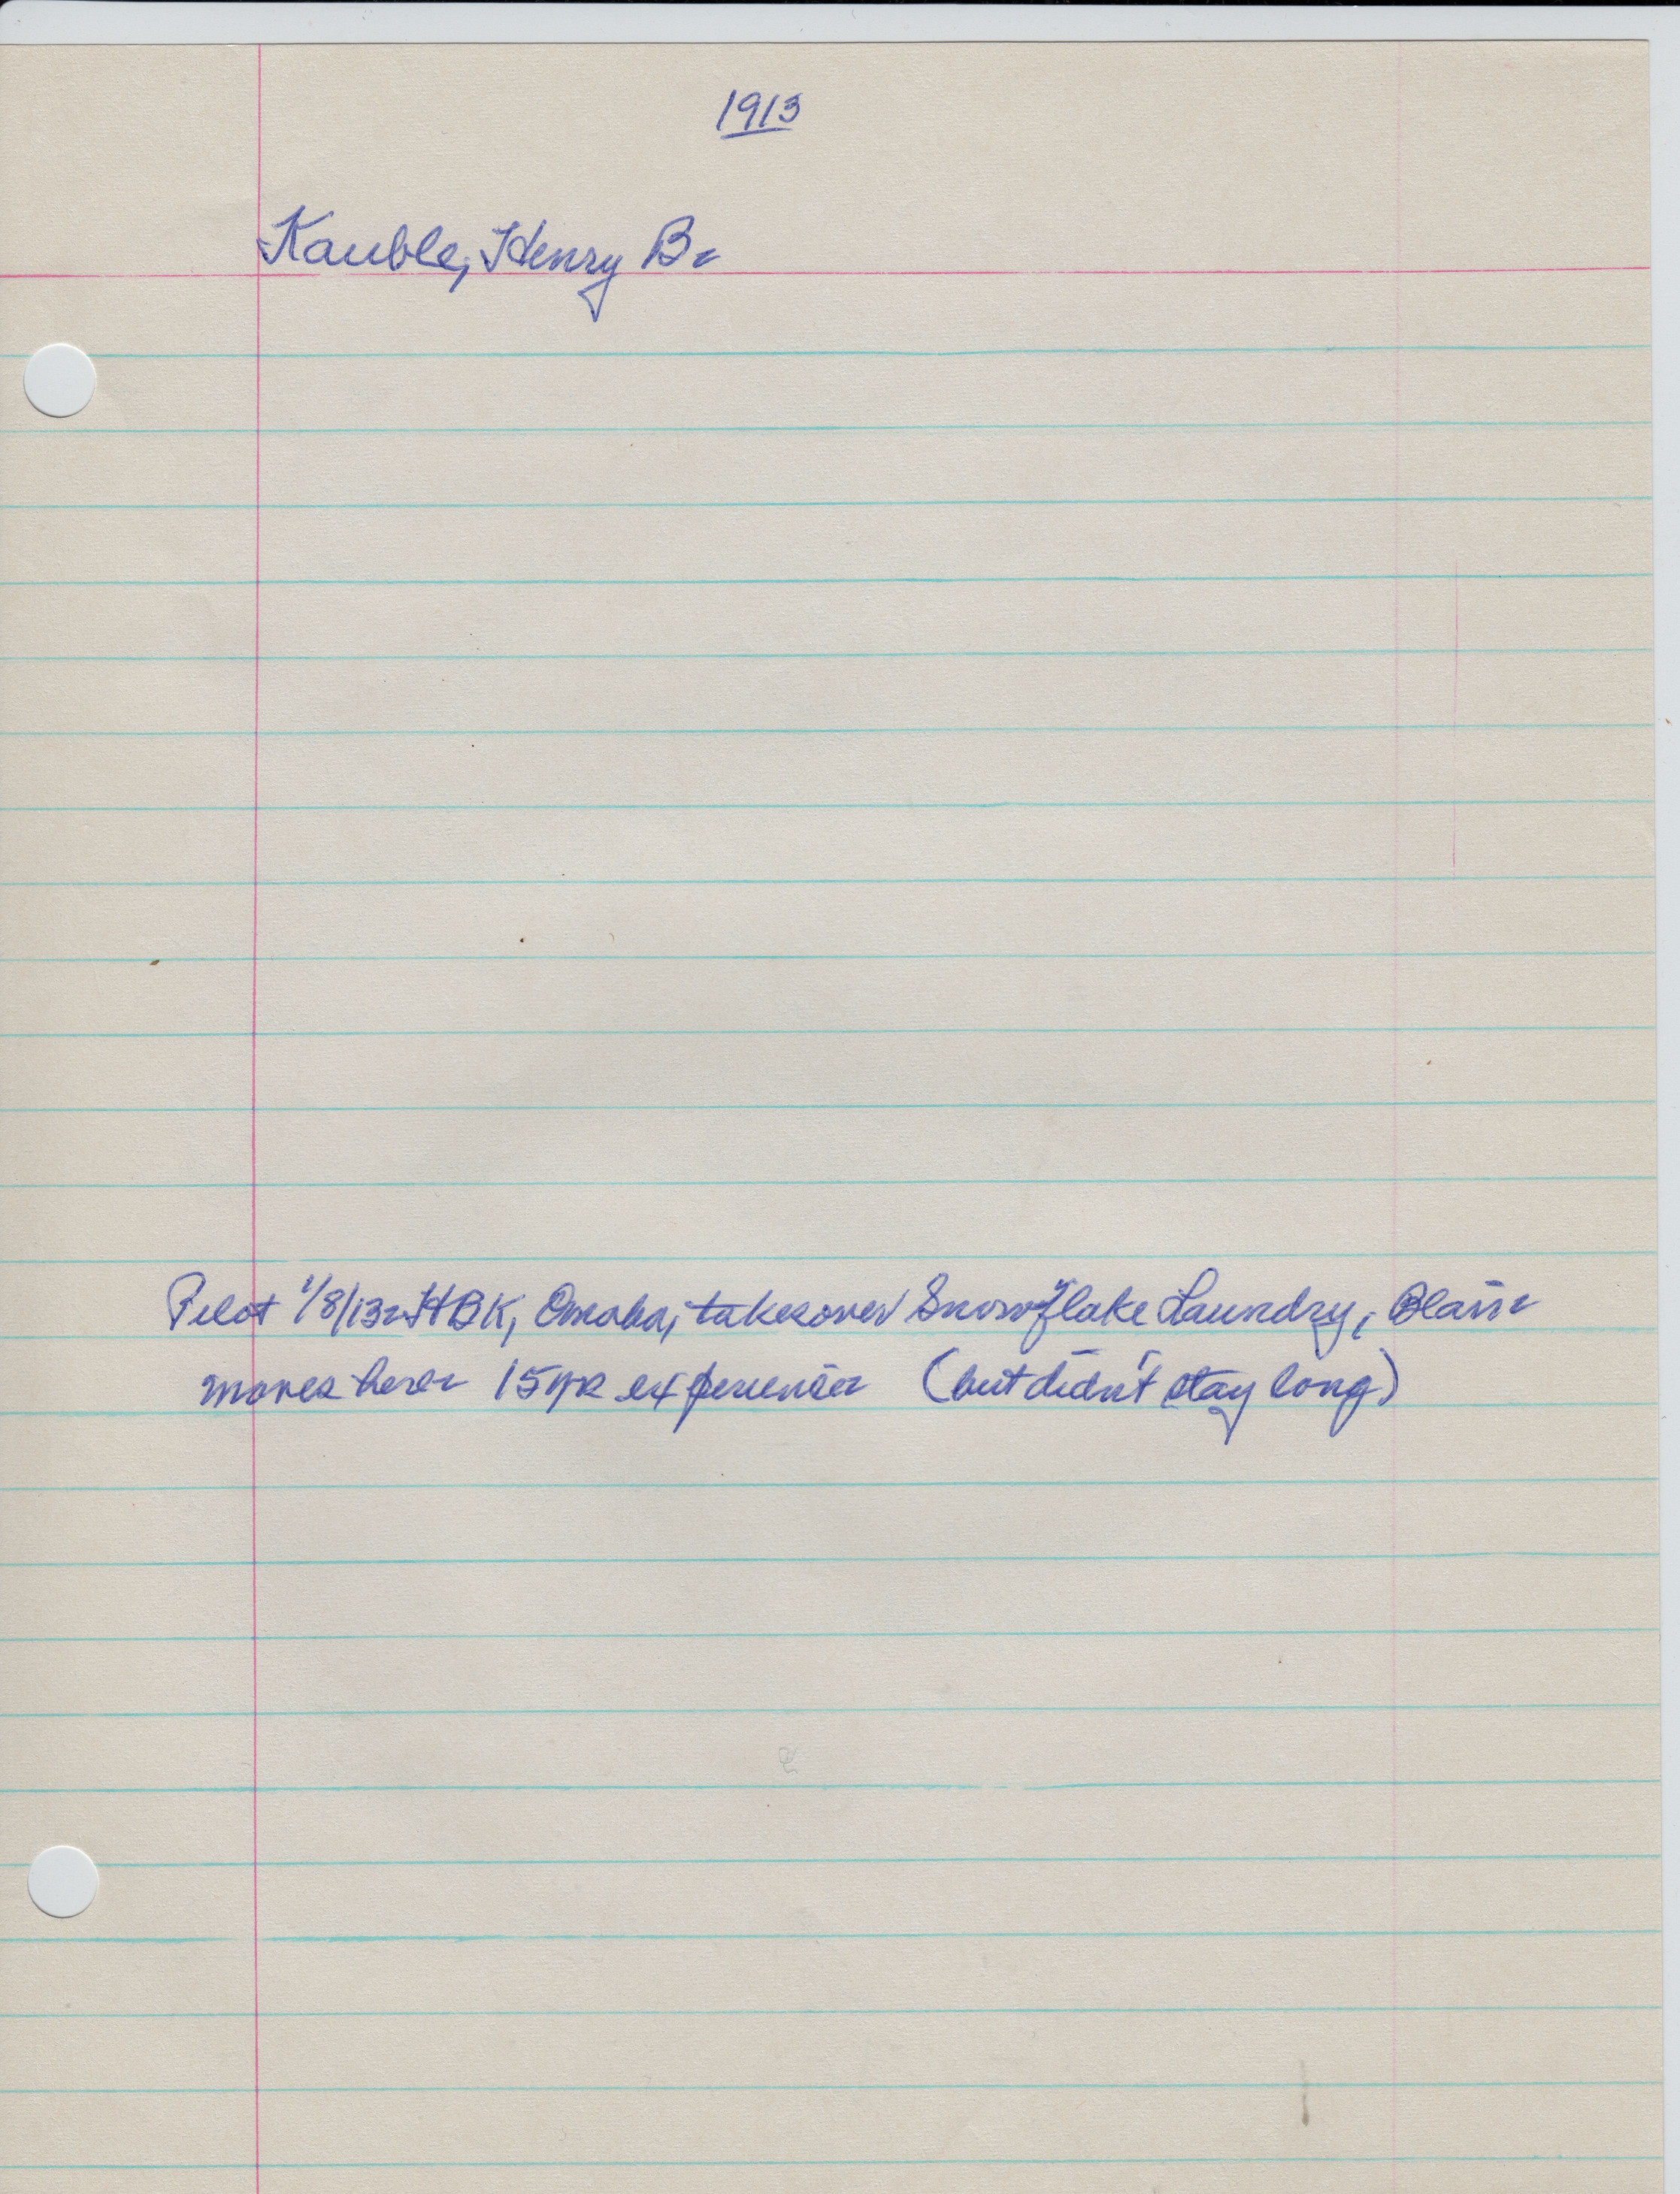 1913
Kauble, Henry B.
Pilot 1/8/13. HBK, Omaha, takes over Snowflake Laundry, Blair.
moves here. 15 yrs experience (but didn't stay long)